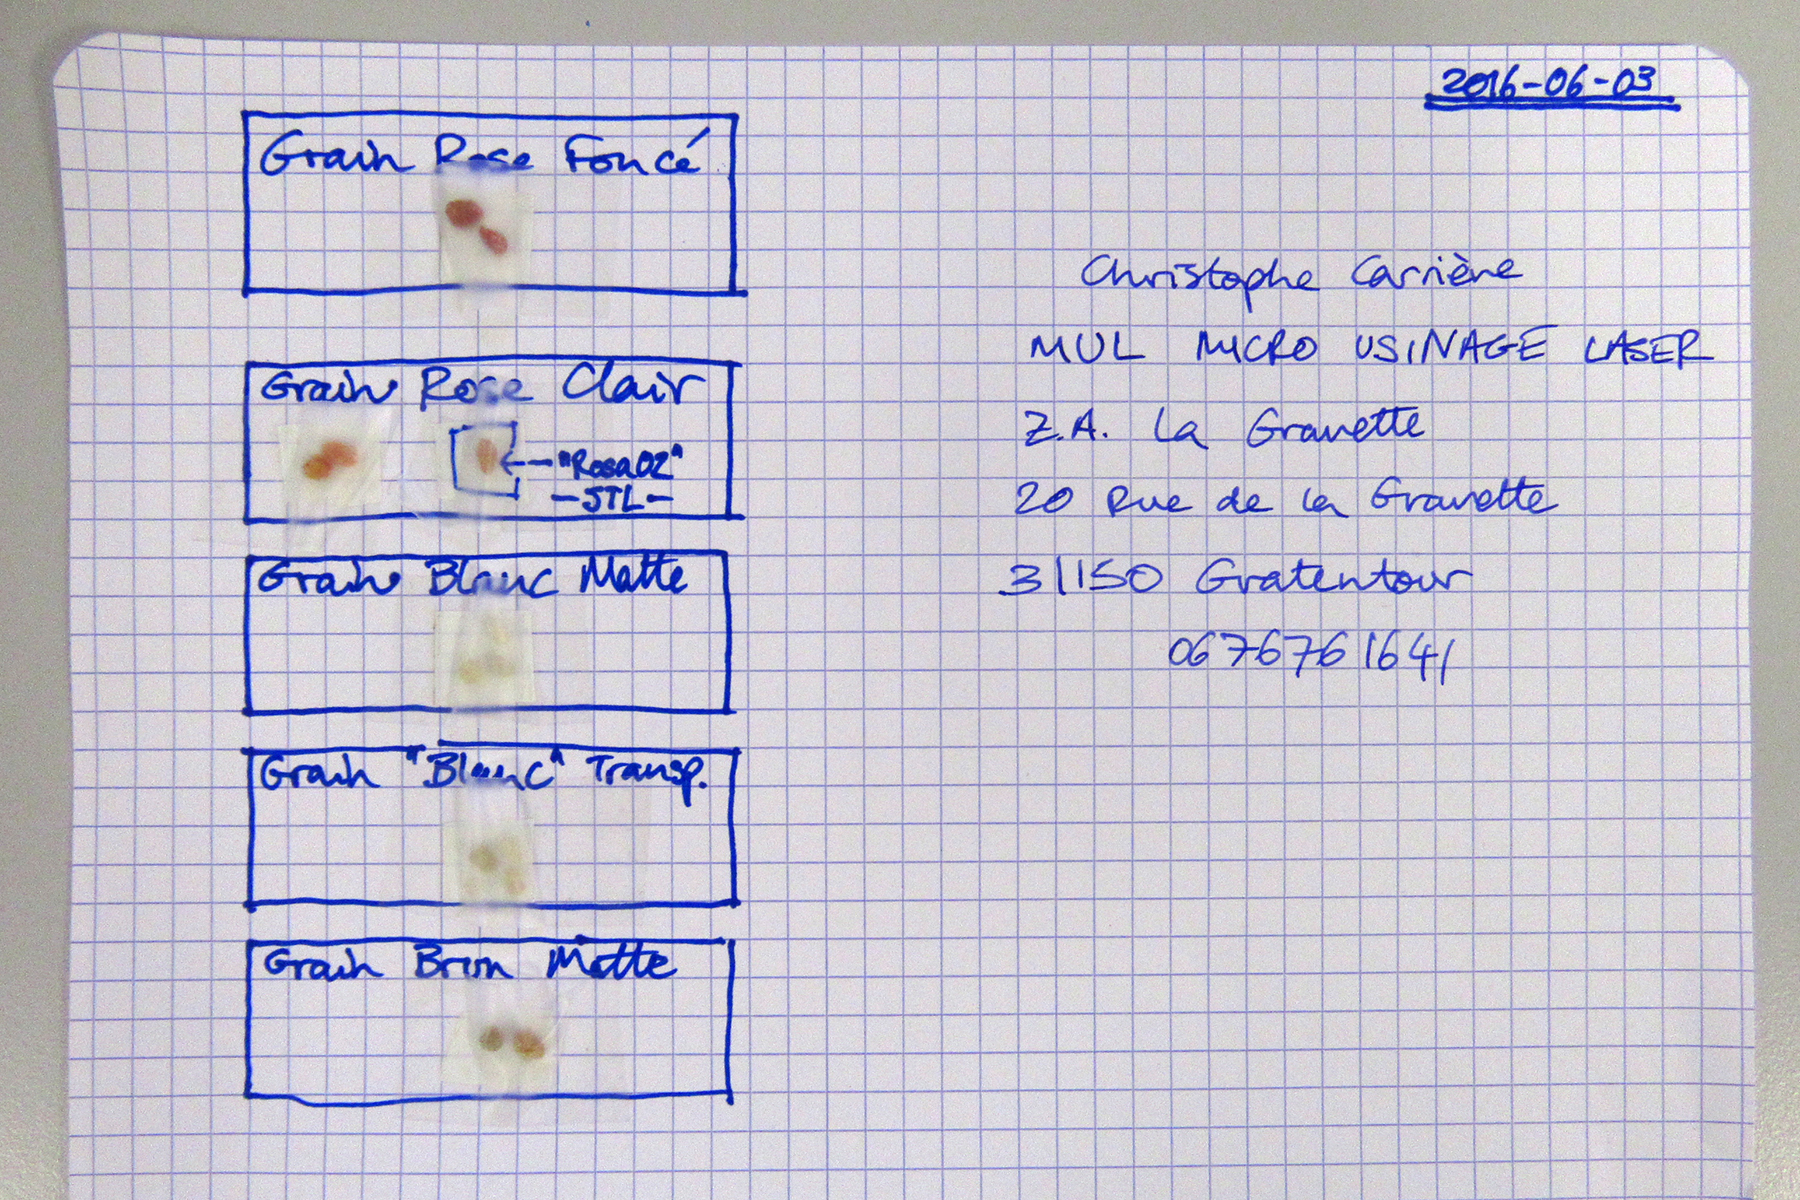 2016-06-03
Grain Rose Foncé
Grain Rose Clair
"Rosa02"
-STL-
Grain Blanc Matte
Grain "Blanc" Transp.
Grain Brun Matte
Christophe Carrière
MUL MICRO USINAGE LASER
Z.A. La Gravette
20 Rue de la Gravette
31150 Gratentour
0676761641